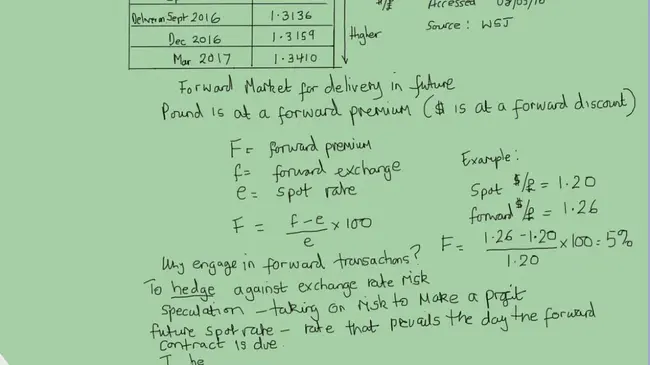 $/£ Accessed
Deliver in Sept 2016 1.3136
Source: WSJ
Dec 2016 1.3159
Higher
Mar 2017 1.3410
Forward Market for delivery in future
Pound is at a forward premium ($ is at a forward discount)
F = forward premium
f = forward exchange
e = spot rate
F = f-e/e x 100
Example:
Spot $/£ = 1.20
forward $/£ = 1.26
F = 1.26 - 1.20/1.20 x 100 = 5%
Why engage in forward transactions?
To hedge against exchange rate risk
Speculation - taking on risk to make a profit
future spot rate - rate that prevails the day the forward
contract is due.